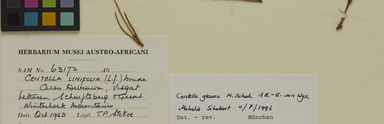 HERBARIUM MUSEI AUSTRO-AFRICANI
SAM No. 63172 Alt.
CENTELLA LINIFOLIA (L.f.) Drude
Ceres Division, Visgat
between Schurftberg & Great
Winterhoek Mountains
Date Oct 1953 Legit T.P. Stokoe
Centella glauca M. Schub. & B.-E. van Wyk
Mahala Schubert 11/7/1996
Det. – rev. München